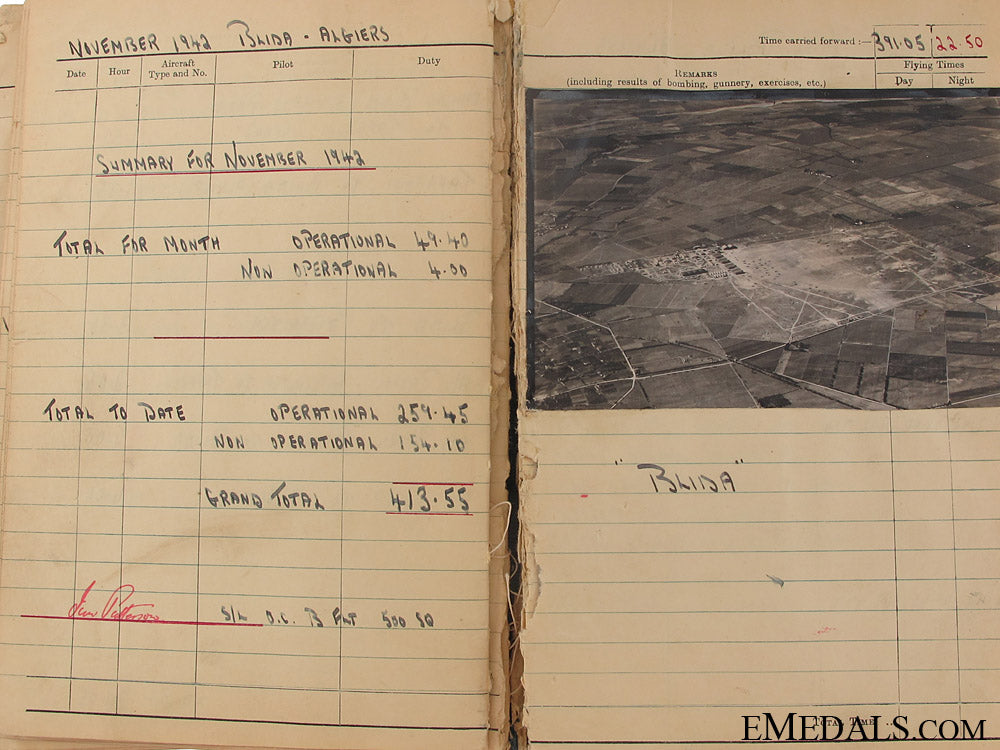 NOVEMBER 1942 BLIDA - ALGIERS
Date Hour Aircraft Type and No. Pilot Duty
SUMMARY FOR NOVEMBER 1942
TOTAL FOR MONTH OPERATIONAL 49.40
NON OPERATIONAL 4.00
TOTAL TO DATE OPERATIONAL 259.45
NON OPERATIONAL 154.10
GRAND TOTAL 413.55
Patterson S/L O.C. B FLT 500 SQ
Time carried forward :— 391.05 22.50
Flying Times
REMARKS
(including results of bombing, gunnery, exercises, etc.)
Day Night
"BLIDA"
TOTAL TIME ...
EMEDALS.COM